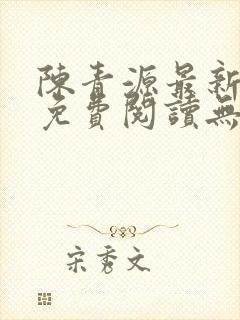 陳青源最新
免費閱讀無
宋秀文